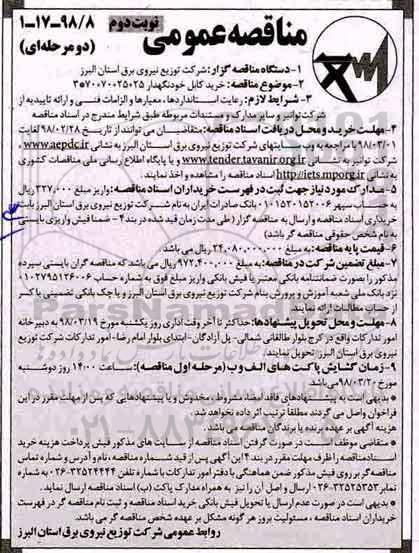 نوبت دوم
مناقصه عمومی
۱-۱۷-۹۸/۸
(دو مرحله‌ای)
۱- دستگاه مناقصه گزار: شرکت توزیع نیروی برق استان البرز
۲- موضوع مناقصه: خرید کابل خودنگهدار ۳۵۷۰۰۷۰۰۲۵۰۲۵
۳- شرایط لازم: رعایت استانداردها، معیارها و الزامات فنی و ارائه تاییدیه از
شرکت توانیر و سایر مدارک و مستندات مربوطه طبق شرایط مندرج در اسناد مناقصه
۴- مهلت خرید و محل دریافت اسناد مناقصه: متقاضیان می توانند از تاریخ ۹۸/۰۲/۲۸ لغایت
۹۸/۰۳/۰۱ با مراجعه به وب سایتهای شرکت توزیع نیروی برق استان البرز به نشانی www.aepdc.ir ،
شرکت توانیر به نشانی www.tender.tavanir.org.ir و یا پایگاه اطلاع رسانی ملی مناقصات کشوری
به نشانی http://iets.mporg.ir اسناد مناقصه را مشاهده و اخذ نمایند.
۵- مدارک مورد نیاز جهت ثبت در فهرست خریداران اسناد مناقصه: واریز مبلغ ۳۲۷,۰۰۰ ریال
به حساب سپهر ۰۱۰۱۵۲۰۱۵۲۰۰۶ بانک صادرات ایران به نام شرکت توزیع نیروی برق استان البرز بابت
خریداری اسناد مناقصه و ارسال به مناقصه گزار (طی مدت زمان قید شده در بند ۴ - ضمنا فیش واریزی بایستی
به نام شخص حقوقی مناقصه گر باشد)
۶- قیمت پایه مناقصه: به مبلغ ۲۴,۰۸۰,۰۰۰,۰۰۰ ریال می باشد
۷- مبلغ تضمین شرکت در مناقصه: به مبلغ ۹۷۲,۴۰۰,۰۰۰ ریال می باشد که مناقصه گران بایستی سپرده
مذکور را بصورت ضمانتنامه بانکی معتبر یا فیش بانکی واریز مبلغ فوق به شماره حساب ۰۱۰۲۷۹۵۱۲۶۰۰۶
نزد بانک ملی شعبه آموزش و پرورش بنام شرکت توزیع نیروی برق استان البرز و یا چک بانکی تضمینی یا کسر
از حساب مطالبات ارائه نمایند.
۸- مهلت و محل تحویل پیشنهادها: حداکثر تا آخر وقت اداری روز یکشنبه مورخ ۹۸/۰۳/۱۹ به دبیرخانه
امور تدارکات واقع در کرج بلوار طالقانی شمالی- پل آزادگان- ابتدای بلوار امام رضا- امور تدارکات شرکت توزیع
نیروی برق استان البرز، تحویل نمایند.
۹- زمان گشایش پاکت های الف و ب (مرحله اول مناقصه): ساعت ۱۴:۰۰ روز دوشنبه
مورخ ۹۸/۰۳/۲۰ می باشد.
• بدیهی است به پیشنهادهای فاقد امضا، مشروط، مخدوش و یا پیشنهادهایی که پس از مهلت مقرر در این
فراخوان واصل می گردند مطلقا ترتیب اثر داده نخواهد شد.
هزینه آگهی بر عهده برنده یا برندگان مناقصه می باشد.
• متقاضی موظف است در صورت گرفتن اسناد مناقصه از سایت های مذکور فیش پرداخت هزینه خرید
اسناد مناقصه را ظرف مهلت مقرر در بند ۴ این آگهی پس از قید شماره مناقصه، نام و آدرس و شماره تماس
مناقصه گر بر روی فیش مذکور ضمن هماهنگی با دفتر امور تدارکات با شماره تلفن ۳۲۵۲۴۴۴۴-۰۲۶ به شماره
نمابر ۳۲۵۲۵۳۵۳-۰۲۶ ارسال و اصل آن را نیز به همراه مدارک پاکت (ب) اسناد مناقصه ارسال نماید.
• بدیهی است در صورت عدم ارسال یا تحویل فیش بانکی خرید اسناد مناقصه و ثبت نام مناقصه گر در فهرست
خریداران اسناد مناقصه، مسئولیت بروز هر گونه مشکل بر عهده شخص مناقصه گر می باشد.
روابط عمومی شرکت توزیع نیروی برق استان البرز